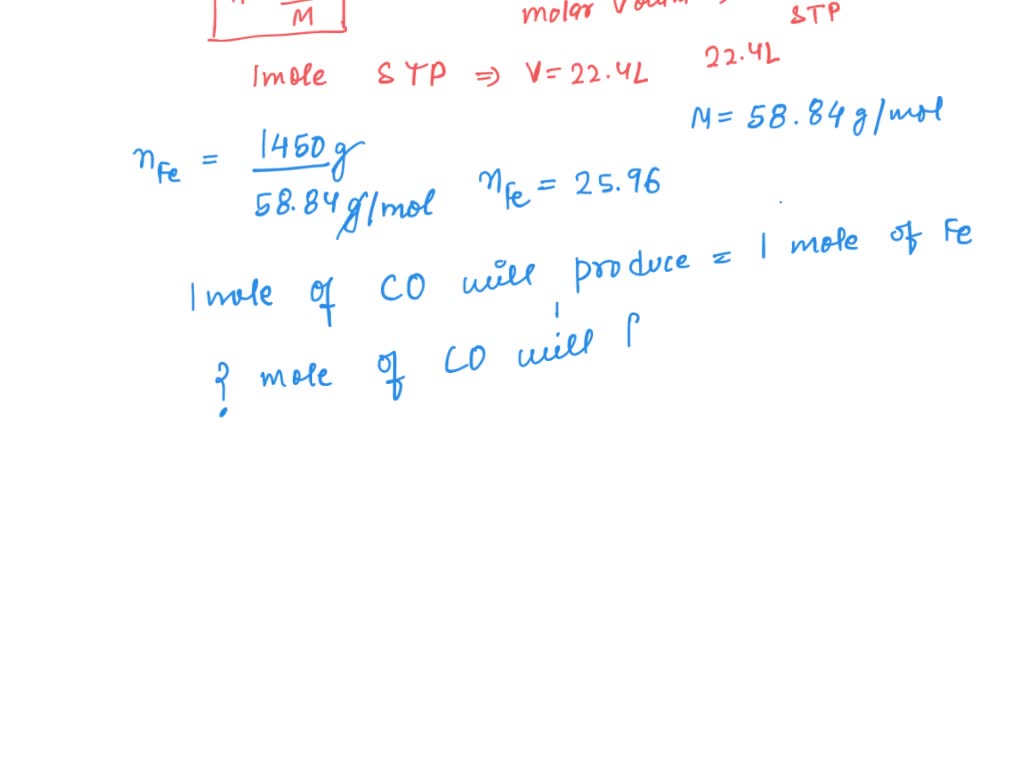 M
molar
STP
1mole STP ⇒ V=22.4L 22.4L
M= 58.84 g/mol
nFe = 1450g
58.84 g/mol nFe = 25.96
1 mole of CO will produce = 1 mole of Fe
? mole of CO will P